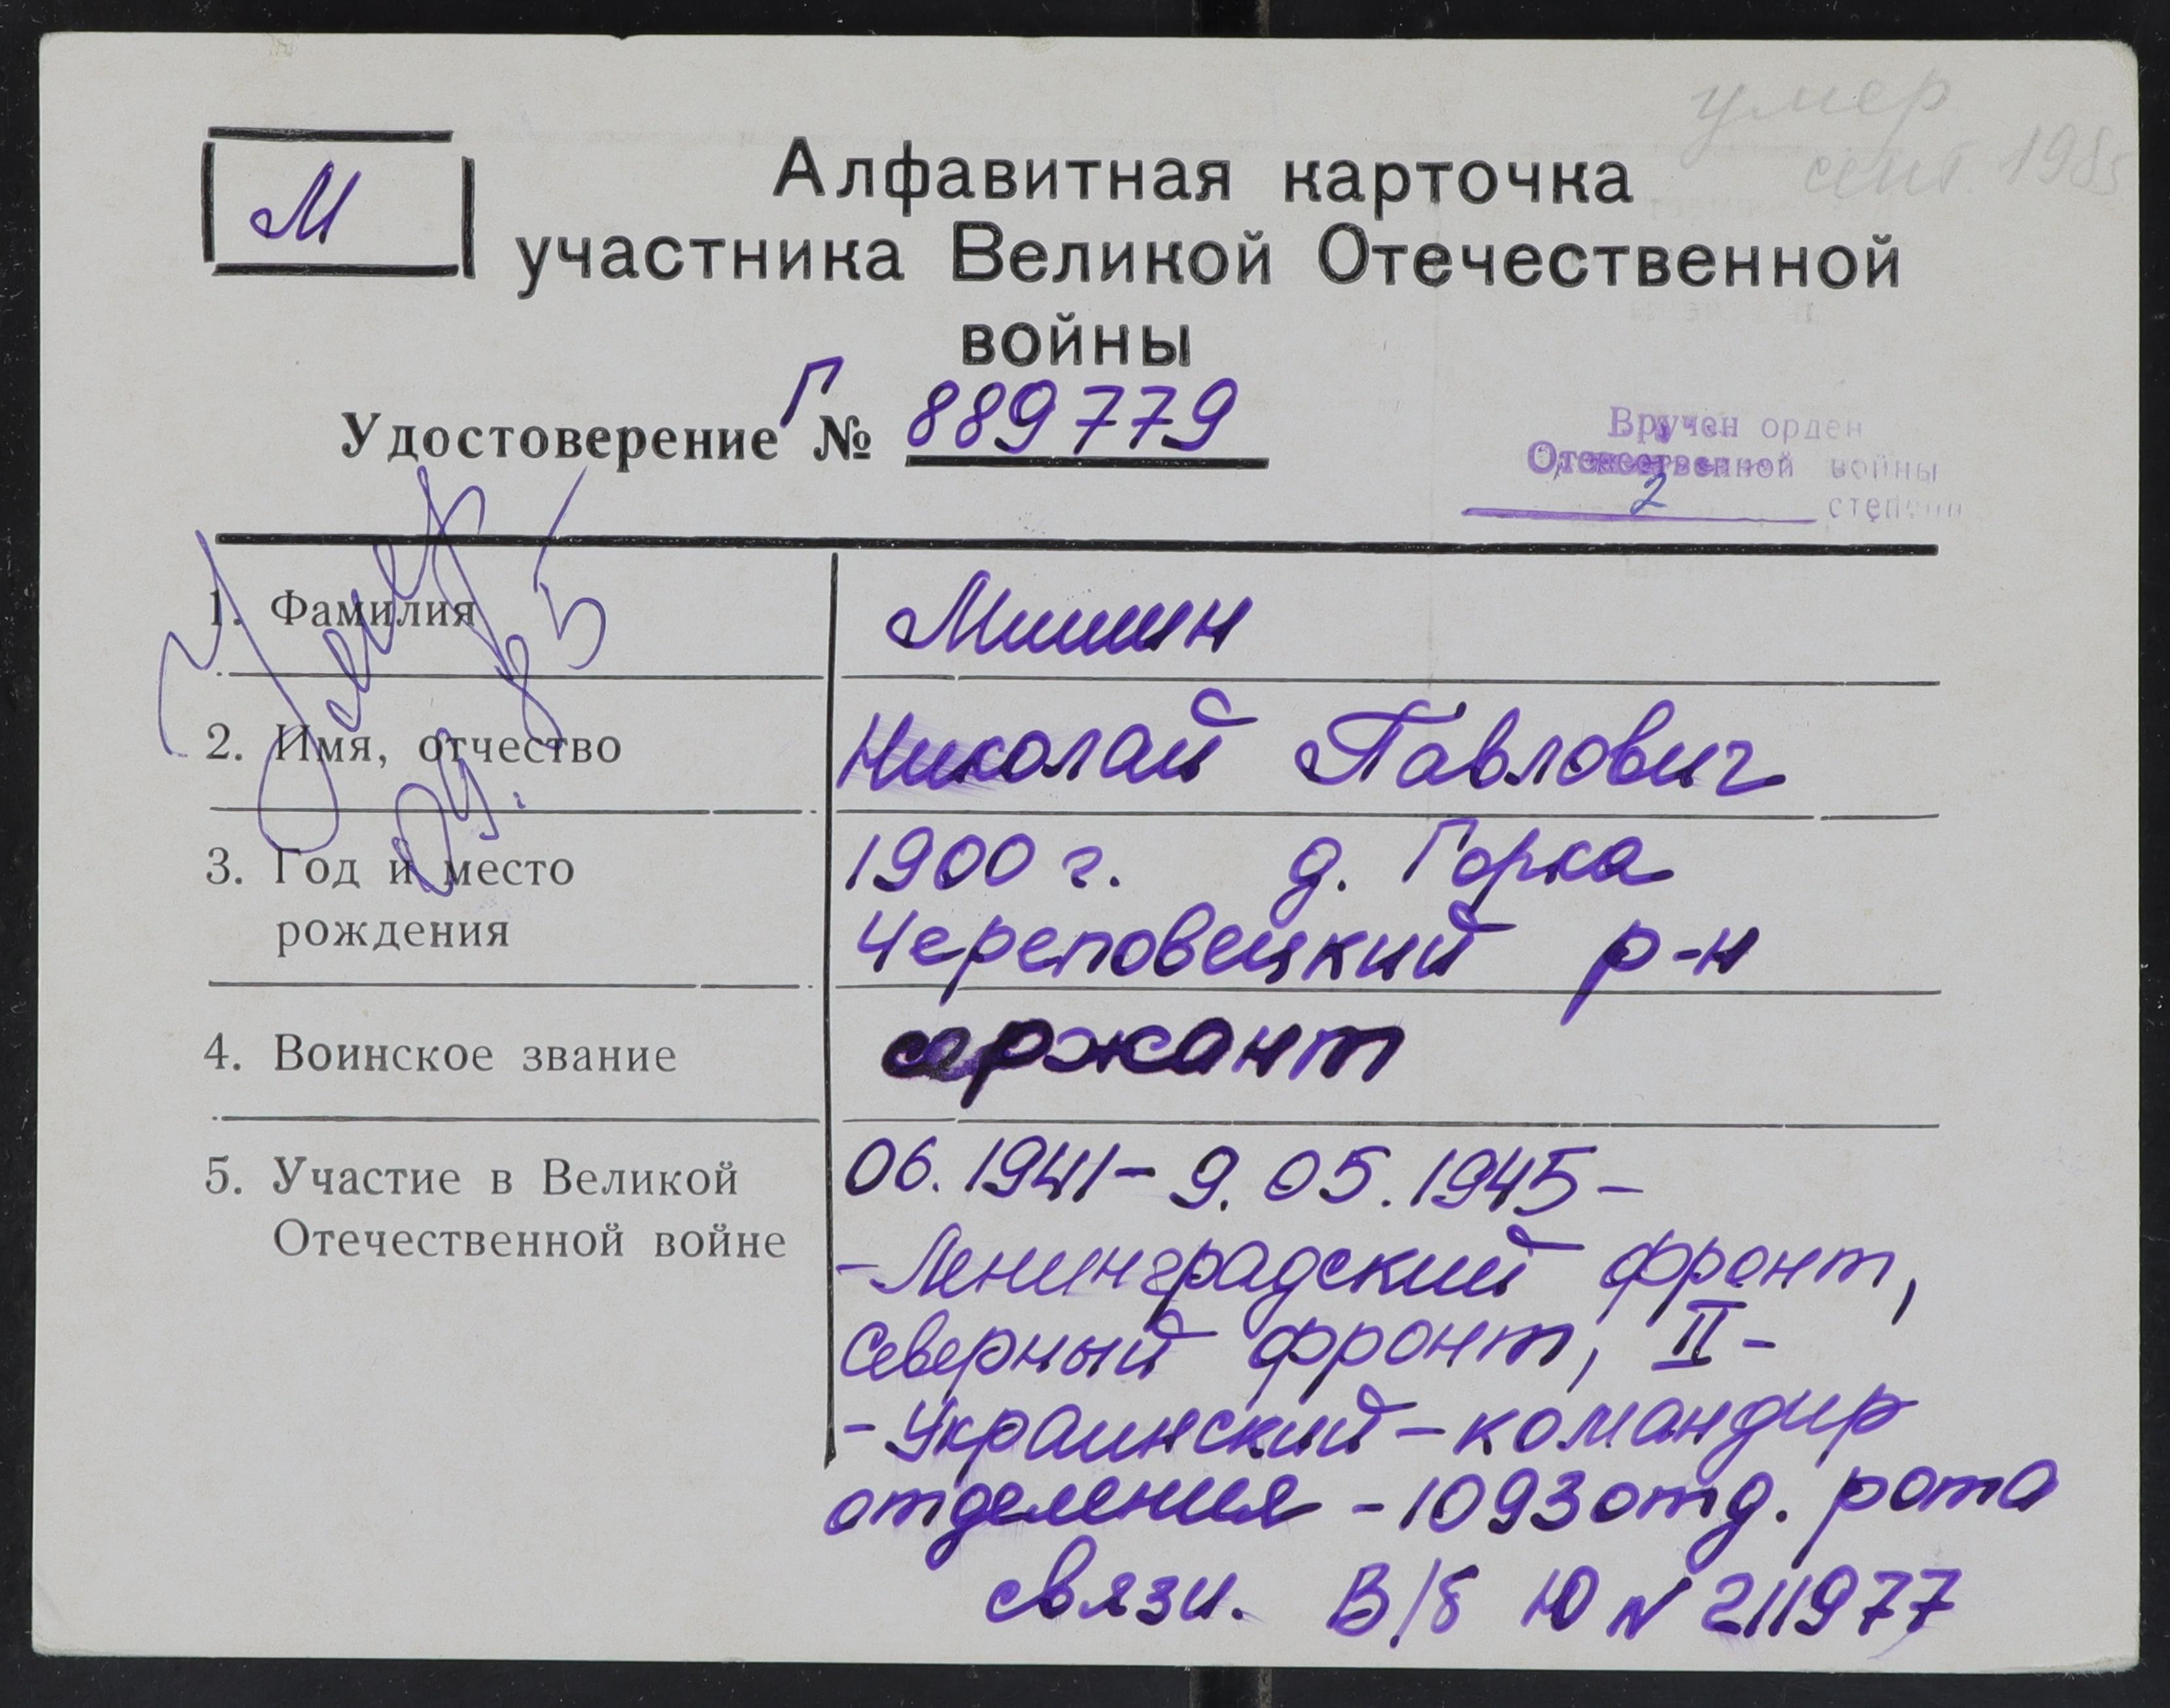 умер
сент. 1985
М
Алфавитная карточка
участника Великой Отечественной
войны
Удостоверение Г № 889779
Вручен орден
Отечественной войны
2 степени
Умер
09.85
1. Фамилия Мишин
2. Имя, отчество Николай Павлович
3. Год и место 1900 г. д. Горка
рождения Череповецкий р-н
4. Воинское звание сержант
5. Участие в Великой 06.1941- 9.05.1945-
Отечественной войне -Ленинградский фронт,
Северный фронт, II-
-Украинский-командир
отделения -1093 отд. рота
связи. В/б Ю N 211977